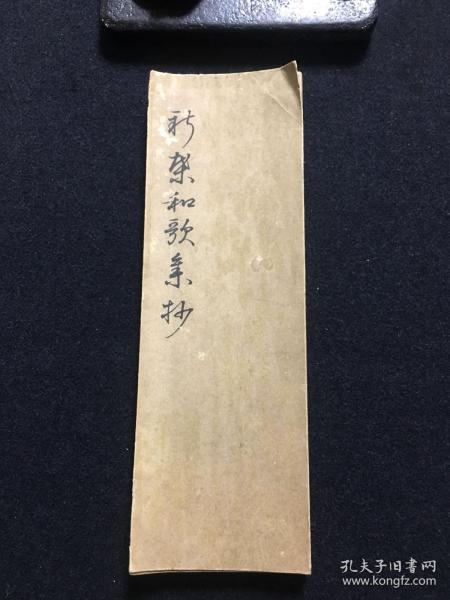 新葉和歌集抄
孔夫子旧书网
www.kongfz.com